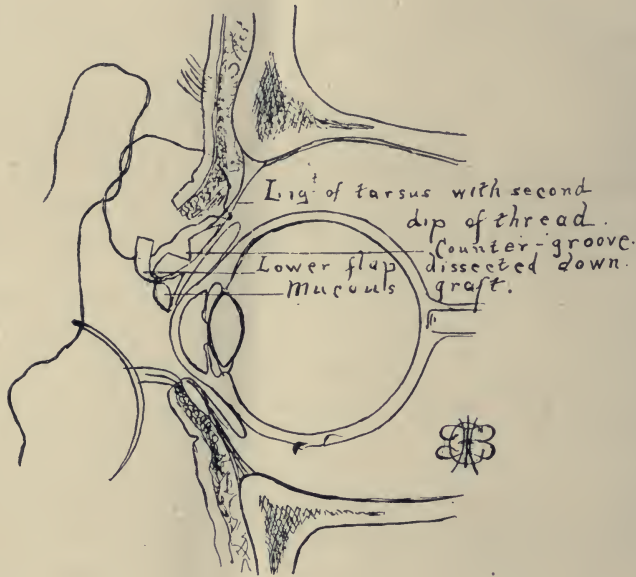 Ligt of tarsus with second
dip of thread.
Counter-groove.
Lower flap dissected down.
Mucous graft.